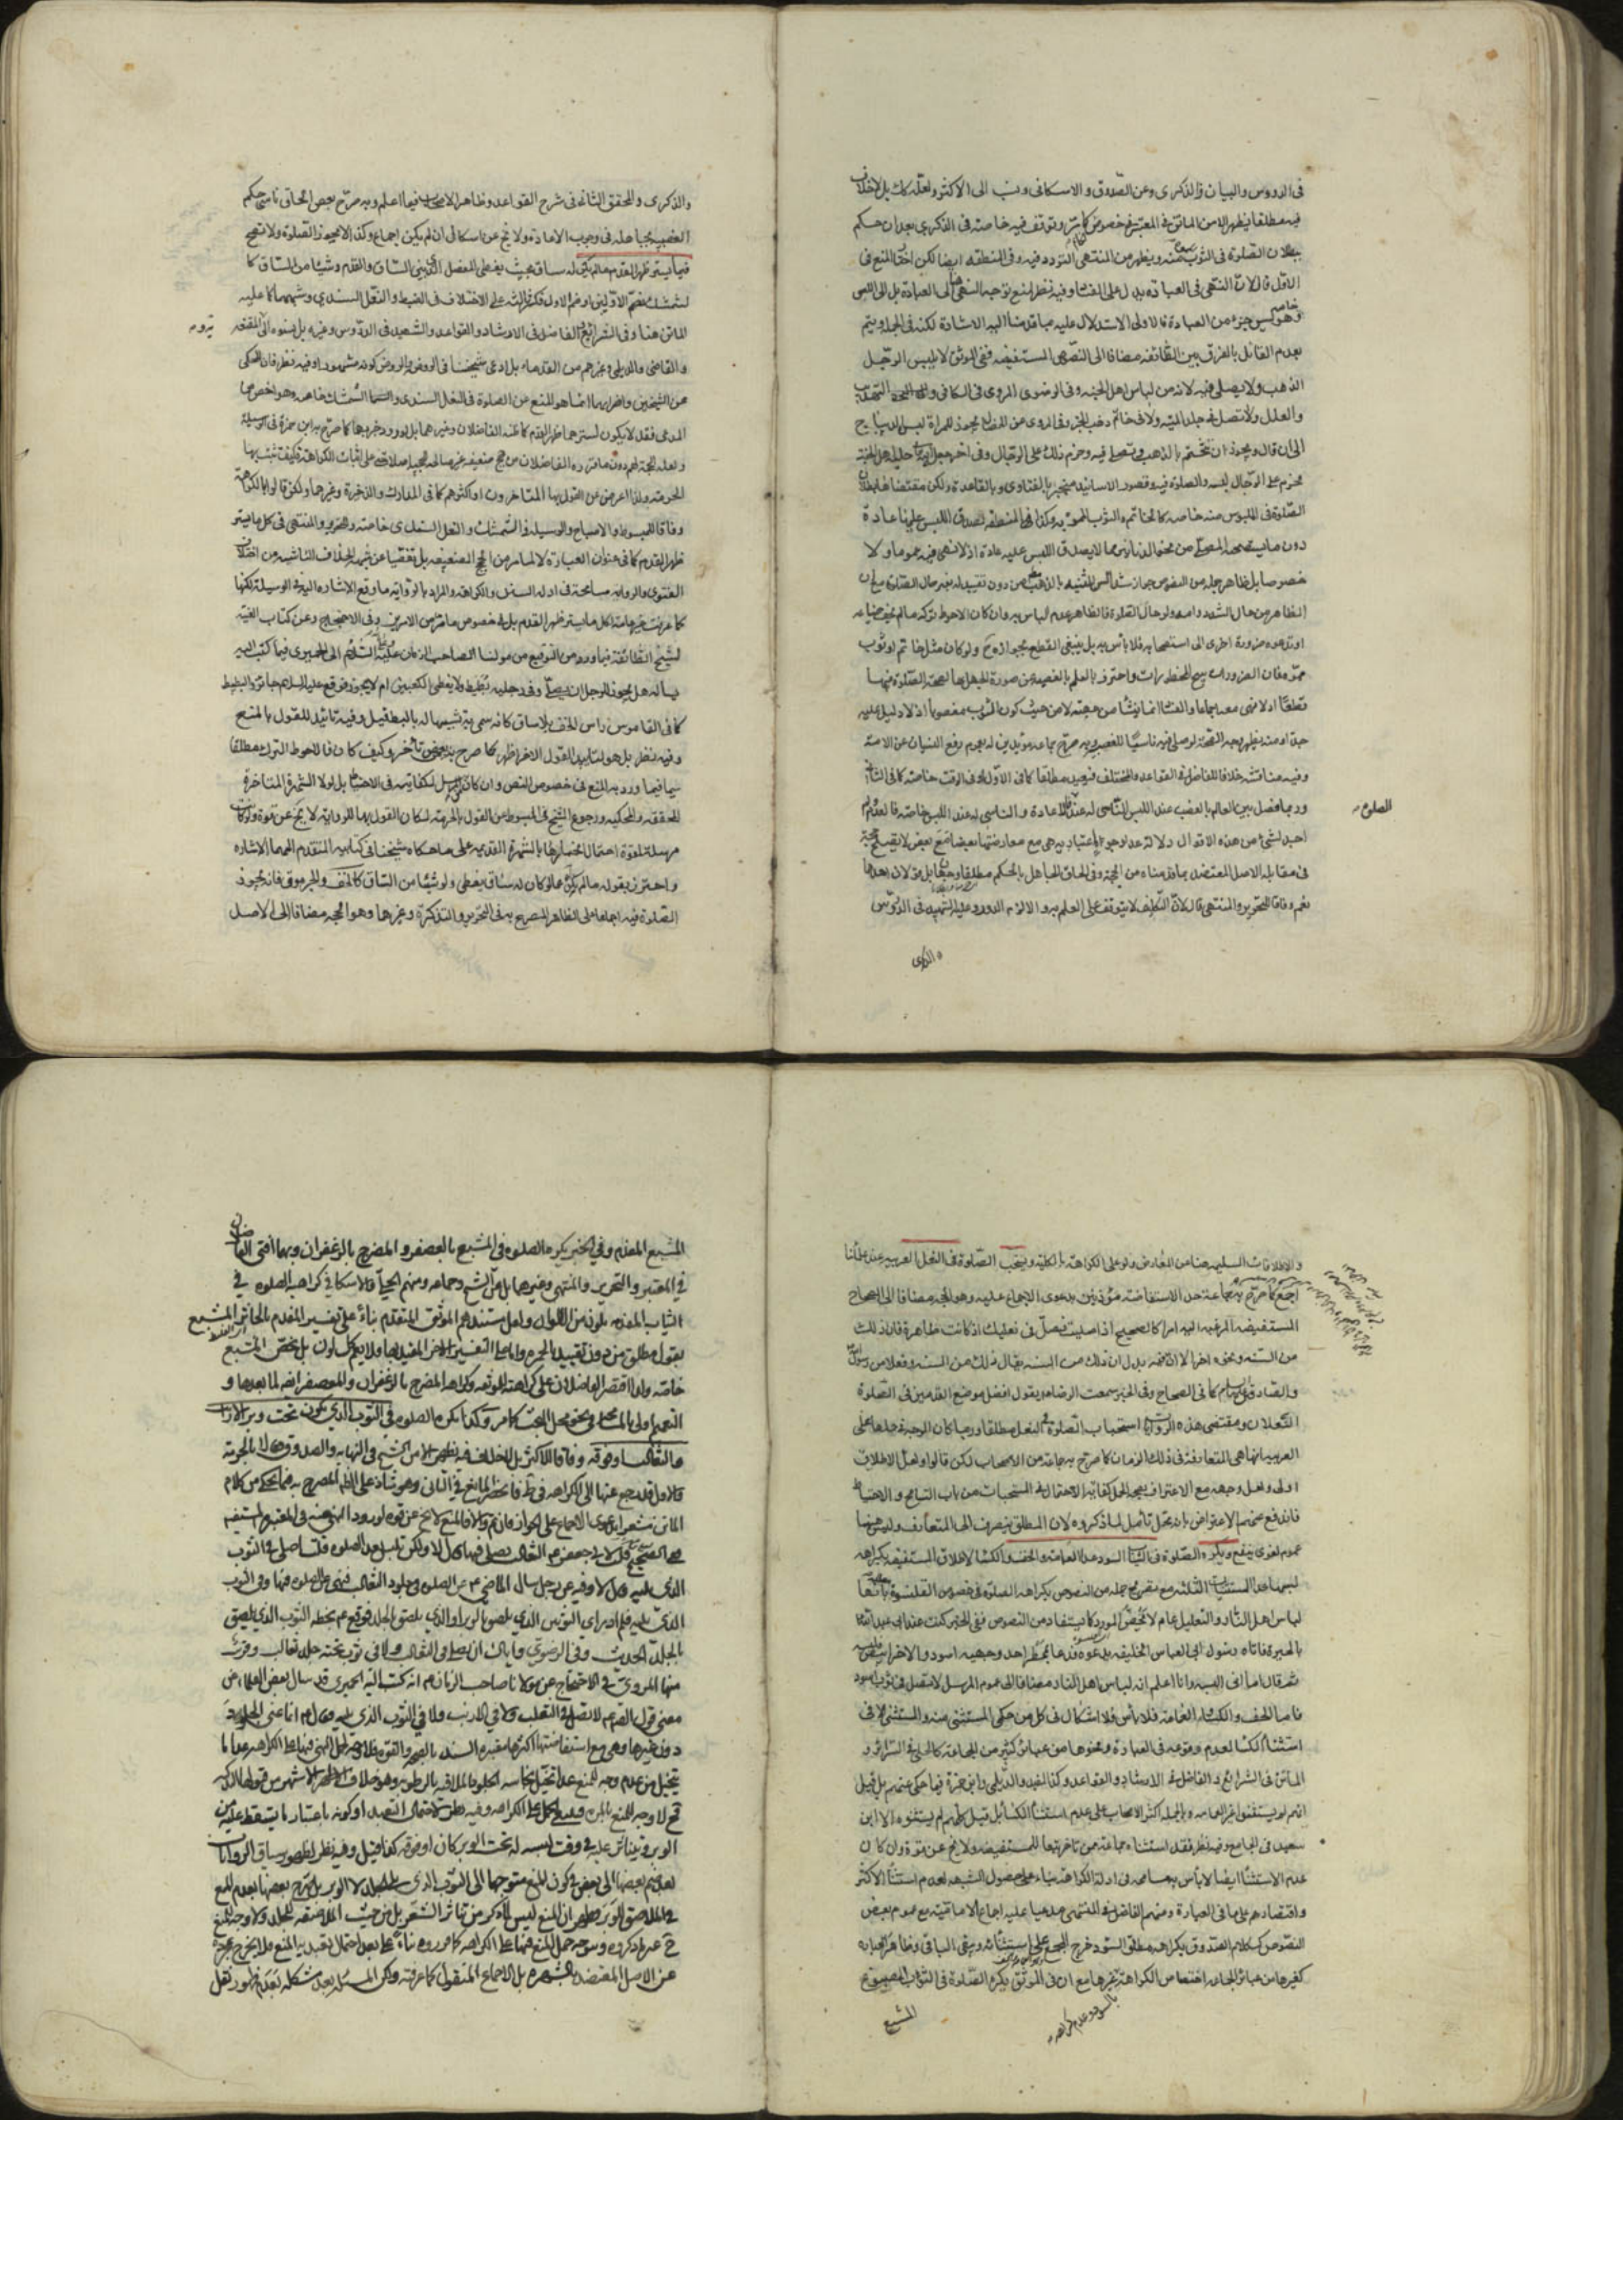 فى الدروس والبيان والذكرى وعن الصدوق والاسكافى ونسب الى الاكثر ولعله كذلك بل لاخلاف
فيه مطلقا يظهر الا من الماتن فى المعتبر فى خصوص وتوقف فيه خاصة فى الذكرى بعد ان حكم
ببطلان الصلوة فى الثوب منه ويظهر من المنتهى التردد فيه وفى المنطقه ايضا لكن اخر المنع فى
الاول قال لان النهى فى العبادة يدل على الفساد وفيه نظر لمنع توجه النهى الى العبادة بل الى اللبس
وهو ليس جزء من العبادة فالاولى الاستدلال عليه بما قدمنا اليه الاشارة لكنه فى الجمله ويتم
بعدم القائل بالفرق بين الطائفه مضافا الى النصوص المستفيضه ففى الموثق لا يلبس الرجل
الذهب ولا يصلى فيه لانه من لباس اهل الجنه وفى الرضوى المروى فى الكافى و التهذيب
والعلل ولا تصل فى جلد الميته ولا فى خاتم ذهب الخبر وفى المروى عن الخصال يجوز للمراة لبس الديباج
الى ان قال ويجوز ان تختم بالذهب وتصلى فيه وحرم ذلك على الرجال وفى اخر جعل الله حلية اهل الجنة
فحرم على الرجال لبسه والصلوة فيه وقصور الاسانيد منجبر بالفتاوى وبالقاعدة ولكن مقتضاها بطلان
الصلوة فى الملبوس منه خاصه كالخاتم والثوب المموه به وكذا فى المنطقه لصدق اللبس عليها عادة
دون ما يستصحبه المصلى من نحو الدنانير مما لا يصدق اللبس عليه عادة اذ لا نهى فيه عموما ولا
خصوصا بل ظاهر جمله من النصوص جواز شد السن الثنيه بالذهب من دون تقييد له بغير حال الصلوة مع ان
الظاهر من حال الشد دوامه ولو حال الصلوة فالظاهر عدم الباس به وان كان الاحوط تركه ما لم يخف ضياعه
او تدعوه ضرورة اخرى الى استصحابه فلا بأس به بل ينبغى القطع بجوازه ح ولو كان مثل خاتم او ثوب
مموه فان الضرورات تبيح المحظورات واحترز بالعلم بالغصبيه عن صورة الجهل بها لصحه الصلوة فيها
قطعا اذ لا نهى معه اجماعا والفساد انما ينشأ من جهته لا من حيث كون الثوب مغصوبا اذ لا دليل عليه
جدا ومنه يظهر وجه الصحة لو صلى فيه ناسيا للغصب وبه صرح جماعه مؤيدين له بعموم رفع النسيان عن الامة
وفيه مناقشه خلافا للفاضل فى القواعد والمختلف فيعيد مطلقا كما فى الاول او فى الوقت خاصة كما فى الثانى
وربما فصل بين العالم بالغصب عند اللبس الناسى له عند الاعادة والناسى له عند اللبس خاصه فالعدم
الصلوة
احد لشئ من هذه الاقوال دلالة عدا وجوه اعتباريه هى مع معارضتها بعضا مع بعض لا تصلح حجة
فى مقابله الاصل المعتضد بما قدمناه من الحجة وفى الحاق الجاهل بالحكم مطلقا وجهان بل قولان اصحهما
نعم وفاقا للتحرير والمنتهى قال لان التكليف لا يتوقف على العلم به والا لزم الدور وعليه الشهيد فى الدروس
والذكرى
والذكرى والمحقق الثانى فى شرح القواعد وظاهر الاصحاب فيما اعلم وبه صرح بعض الحاق ناسى حكم
الغصبيه بجاهله فى وجوب الاعادة ولا يخ عن اشكال ان لم يكن اجماع وكذا لا تجوز الصلوة ولا تصح
فيما يستر ظهر القدم ما لم يكن له ساق بحيث يغطى المفصل الذى بين الساق والقدم وشيئا من الساق كما
لشمشك بضم الاولين او ضم الاول فكسر الثانى على الاختلاف فى الضبط والنعل السندى وشبههما كما عليه
الماتن هنا وفى الشرائع والفاضل فى الارشاد والقواعد والشهيد فى الدروس وغيره بل نسبوه الى المقنعه
والقاضى والديلمى وغيرهم من القدماء بل ادعى شيخنا فى الروض والروض كونه مشهورا وفيه نظر فان المحكى
عن الشيخين واضرابهما انما هو المنع عن الصلوة فى النعل السندى والشمشك خاصه وهو اخص من
المدعى فقد لا يكون لسترهما ظهر القدم كما ظنه الفاضلان وغيرهما بل لورود خبر بهما كما صرح به ابن حمزة فى الوسيلة
ولعله الحجة لهم دون ما قرره الفاضلان من حجج ضعيفه غير صالحه للحجيه اصلا حتى على اثبات الكراهة فكيف تثبت بها
الحرمة ولذا اعرض عن القول بها المتاخرون او اكثرهم كما فى المدارك والذخيرة وغيرهما ولكن قالوا بالكراهة
وفاقا للمبسوط والاصباح والوسيله فى الشمشك والنعل السندى خاصة والتحرير والمنتهى فى كل ما يستر
ظهر القدم كما فى عنوان العبارة لا لما مر من الحجج الضعيفه بل تفصيا عن شبهه الخلاف الناشيه من اختلاف
الفتوى والروايه مسامحة فى ادله السنن والكراهة والمراد بالرواية ما وقع الاشاره اليه فى الوسيلة لكنها
كما عرفت غير عامة لكل ما يستر ظهر القدم بل فى خصوص ما مر من الامرين وفى الاحتجاج وعن كتاب الغيبة
لشيخ الطائفة فيما ورد من التوقيع من مولانا الصاحب الزمان عليه السلام الى الحميرى فيما كتب اليه
يسأله هل يجوز للرجل ان يصلى وفى رجليه بطيط ولا يغطى الكعبين ام لا يجوز فوقع عليه السلام جايز والبطيط
كما فى القاموس راس الخف بلا ساق كانه سمى به تشبيها له بالبط قيل وفيه تائيد للقول بالمنع
وفيه نظر بل هو لتاييد القول الاخر اظهر كما صرح به بعض من تأخر وكيف كان فالاحوط الترك مطلقا
سيما فيما ورد به المنع فى خصوص النص وان كان مرسل لكفايته فى الاحتياط بل لولا الشهرة المتاخرة
المحققه والمحكيه ورجوع الشيخ فى المبسوط عن القول بالحرمة لكان القول بها للروايه لا يخ عن قوة ولو كانت
مرسلة لقوة احتمال انجبارها بالشهرة القديمه على ما حكاه شيخنا فى كتابيه المتقدم اليهما الاشاره
واحترز بقوله ما لم يكن عما لو كان له ساق يغطى ولو شيئا من الساق كالخف والجرموق فانه يجوز
الصلوة فيه اجماعا على الظاهر المصرح به فى التحرير والتذكرة وغيرهما وهو الحجه مضافا الى الاصل
والاطلاقات السليمه هنا من المعارض ولو على الكراهة بالكلية ويستحب الصلوة فى النعل العربيه عند علمائنا
اجمع كما صرح به جماعة حد الاستفاضه مؤذنين بدعوى الاجماع عليه وهو الحجه مضافا الى الصحاح
المستفيضه المرغبه اليه امرا كالصحيح اذا صليت فصل فى نعليك اذ كانت طاهرة فان ذلك
من السنه ونحوه اخر الا ان فيه بدل ان ذلك من السنه يقال ذلك من السنه وفعلا من رسول
والصادق عليه السلام كما فى الصحاح وفى الخبر سمعت الرضا يقول افضل موضع القدمين فى الصلوة
النعلان ومقتضى هذه الروايات استحباب الصلوة فى النعل مطلقا وربما كان الوجه فى حملها على
العربيه انها هى المتعارفة فى ذلك الزمان كما صرح به جماعة من الاصحاب لكن قالوا ولعل الاطلاق
اولى ولعل وجهه مع الاعتراف بوجه الحمل كفايه الاحتمال فى المستحبات من باب التسامح والاحتياط
فاندفع عنهم الاعتراض بانه محل تأمل لما ذكروه لان المطلق ينصرف الى المتعارف وليس هنا
عموم لغوى ينفع ويكره الصلوة فى الثياب السود عدا العمامة والخف والكساء لاطلاق المستفيضه بكراهه
لبسها عدا المستثنيات الثلثه مع تصريح جمله من النصوص بكراهه الصلوة فى خصوص القلنسوة بانها
لباس اهل النار والتعليل عام لا يخص المورد كما يستفاد من النصوص ففى الخبر كنت عند ابى عبد الله
بالحيرة فاتاه رسول ابى العباس الخليفه يدعوه فدعا بممطر احد وجهيه اسود والاخر ابيض فلبسه
ثم قال اما انى البسه وانا اعلم انه لباس اهل النار مضافا الى عموم المرسل لا تصل فى ثوب اسود
فاما الخف والكساء والعمامة فلا بأس فلا اشكال فى كل من حكمى المستثنى منه والمستثنى الا فى
استثناء الكساء لعدم وقوعه فى العبادة ونحوها من عبائر كثير من الجماعة كالحلى فى السرائر و
الماتن فى الشرائع والفاضل فى الارشاد والقواعد وكذا المفيد والديلمى وابن حمزة فيما حكى عنهم بل قيل
انهم لم يستثنوا غير العمامه وبالجمله اكثر الاصحاب على عدم استثناء الكساء بل قيل كلهم لم يستثنوه الا ابن
سعيد فى الجامع وفيه نظر فقد استثناه جماعة ممن تاخر تبعا للمستفيضه ولا يخ عن قوة وان كان
عدم الاستثناء ايضا لا بأس به مسامحه فى ادلة الكراهة بناء على حصول الشبهه لعدم استثناء الاكثر
واقتصارهم على ما فى العبارة ومنهم الفاضل فى المنتهى مدعيا عليه اجماع الاماميه مع عموم بعض
النصوص كـكلام الصدوق بكراهه مطلق السود خرج المجمع على استثنائه وبقى الباقى وظاهر العباره
كغيرها من عبائر الجماعه اختصاص الكراهة بغيرها مع ان فى الموثق يكره الصلوة فى الثوب المصبوغ
بالسود وعدم كراهه
المشبع
المشبع المفدم وفى الخبر يكره الصلوه فى المشبع بالعصفر والمضرج بالزعفران وبهما افتى الفاضلان
فى المعتبر والتحرير والمنتهى وغيرهما بل عن الشيخ وجماعه ومنهم الحلى والاسكافى كراهه الصلوه فى
الثياب المفدمه بلون من الالوان ولعل مستندهم الموثق المتقدم بناء على تفسير المفدم بالخاثر المشبع
بقول مطلق من دون تقييد بالحمره واما على التفسير الاخر المقيد بها فلا يعم كل لون بل يختص المشبع
خاصه ولذا اقتصر الفاضلان على كراهته للموثقه وكراهه المضرج بالزعفران والمعصفر ايضه لما بعدها و
التعميم اولى بالمسامحه فى نحو محل البحث كما مر وكذا يكره الصلوه فى الثوب الذى يكون تحت وبر الارانب
والثعالب او فوقه وفاقا للاكثر بل لا خلاف فيه يظهر الا من الشيخ فى النهايه والصدوق وقالا بالحرمة
فالاول قد رجع عنها الى الكراهه فى ط فانحصر المانع فى الثانى وهو شاذ على الظاهر المصرح به فيما يحكى من كلام
الماتن مشعرا بدعوى الاجماع على الجواز فان تم والا فالمنع لا يخ عن قوه لورود النهى عنه فى المعتبره المستفيضه
فى الصحيح عن رجل عن الثعالب يصلى فيها قال لا ولكن تلبس بعد الصلوه قلت اصلى فى الثوب
الذى يليه قال لا وفيه عن رجل سال الماضى ع عن الصلوه فى جلود الثعالب فنهى عن الصلوه فيها وفى الثوب
الذى يليه فلم ادر اى الثوبين الذى يلصق بالوبر او الذى يلصق بالجلد فوقع ع بخطه الثوب الذى يلصق
بالجلد الحديث وفى الرضوى واياك ان تصلى فى الثعالب ولا فى ثوب تحته جلد ثعالب وقريب
منها المروى فى الاحتجاج عن مولانا صاحب الزمان ع انه كتب اليه الحميرى قد سال بعض العلماء عن
معنى قول الصادق ع لا تصل فى الثعلب ولا فى الارنب ولا فى الثوب الذى يليه فقال ع انما عنى الجلود
دون غيرها وهى مع استفاضتها اكثرها معتبره السند بالصحه والقوه فلا وجه لحمل النهى فيها على الكراهه عدا ما
يتخيل من عدم وجه للمنع عدا تخيل نجاسه الجلود بالملاقاه بالرطوبه وهو خلاف الاظهر الاشهر من قبولها التذكيه
فح لا وجه للمنع بالمره فليحمل على الكراهه وفيه نظر لاحتمال التعبد او كونه باعتبار ما يتسقط عليه من
الوبر ويتناثر عليه فى وقت لبسه له تحت الوبر كان او فوقه كذا قيل وفيه نظر لظهور سياق الروايات
بعد ضم بعضها الى بعض فى كون المنع متوجها الى الثوب الذى تحت الجلد لا الوبر بل صرح بعضها بعدم المنع
فى الملاصق للوبر فيظهر ان المنع ليس لما ذكر من تناثر الشعر بل من حيث الملاصقه للجلد ولا وجه للمنع
ح غير ما ذكروه فيتوجه حمل المنع فيها على الكراهه كما مروه بناء على بعد احتمال تعبديه المنع فلا يخرج بمجرده
عن الاصل المعتضد بالشهره بل الاجماع المنقول كما عرفته ولكن المسئله بعد مشكله لعدم ظهور نقل